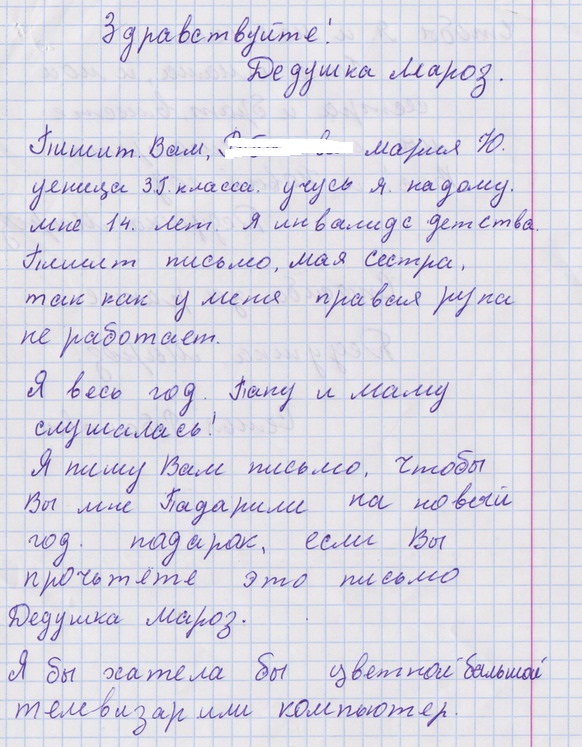 Здравствуйте!
Дедушка Мароз.
Пишит Вам, мария Ю.
уеница 3Г. класса. учусь я. на дому.
мне 14. лет. я инвалид с детства.
Пишит письмо, мая сестра,
так как у меня правая рука
не работает.
Я весь год. Папу и маму
слушалась!
Я пишу Вам письмо, чтобы
Вы мне Падарили на новый
год. падарак, если Вы
прочьтёте это письмо
Дедушка Мароз.
Я бы хатела бы цветной бальшой
телевизар или компьютер.